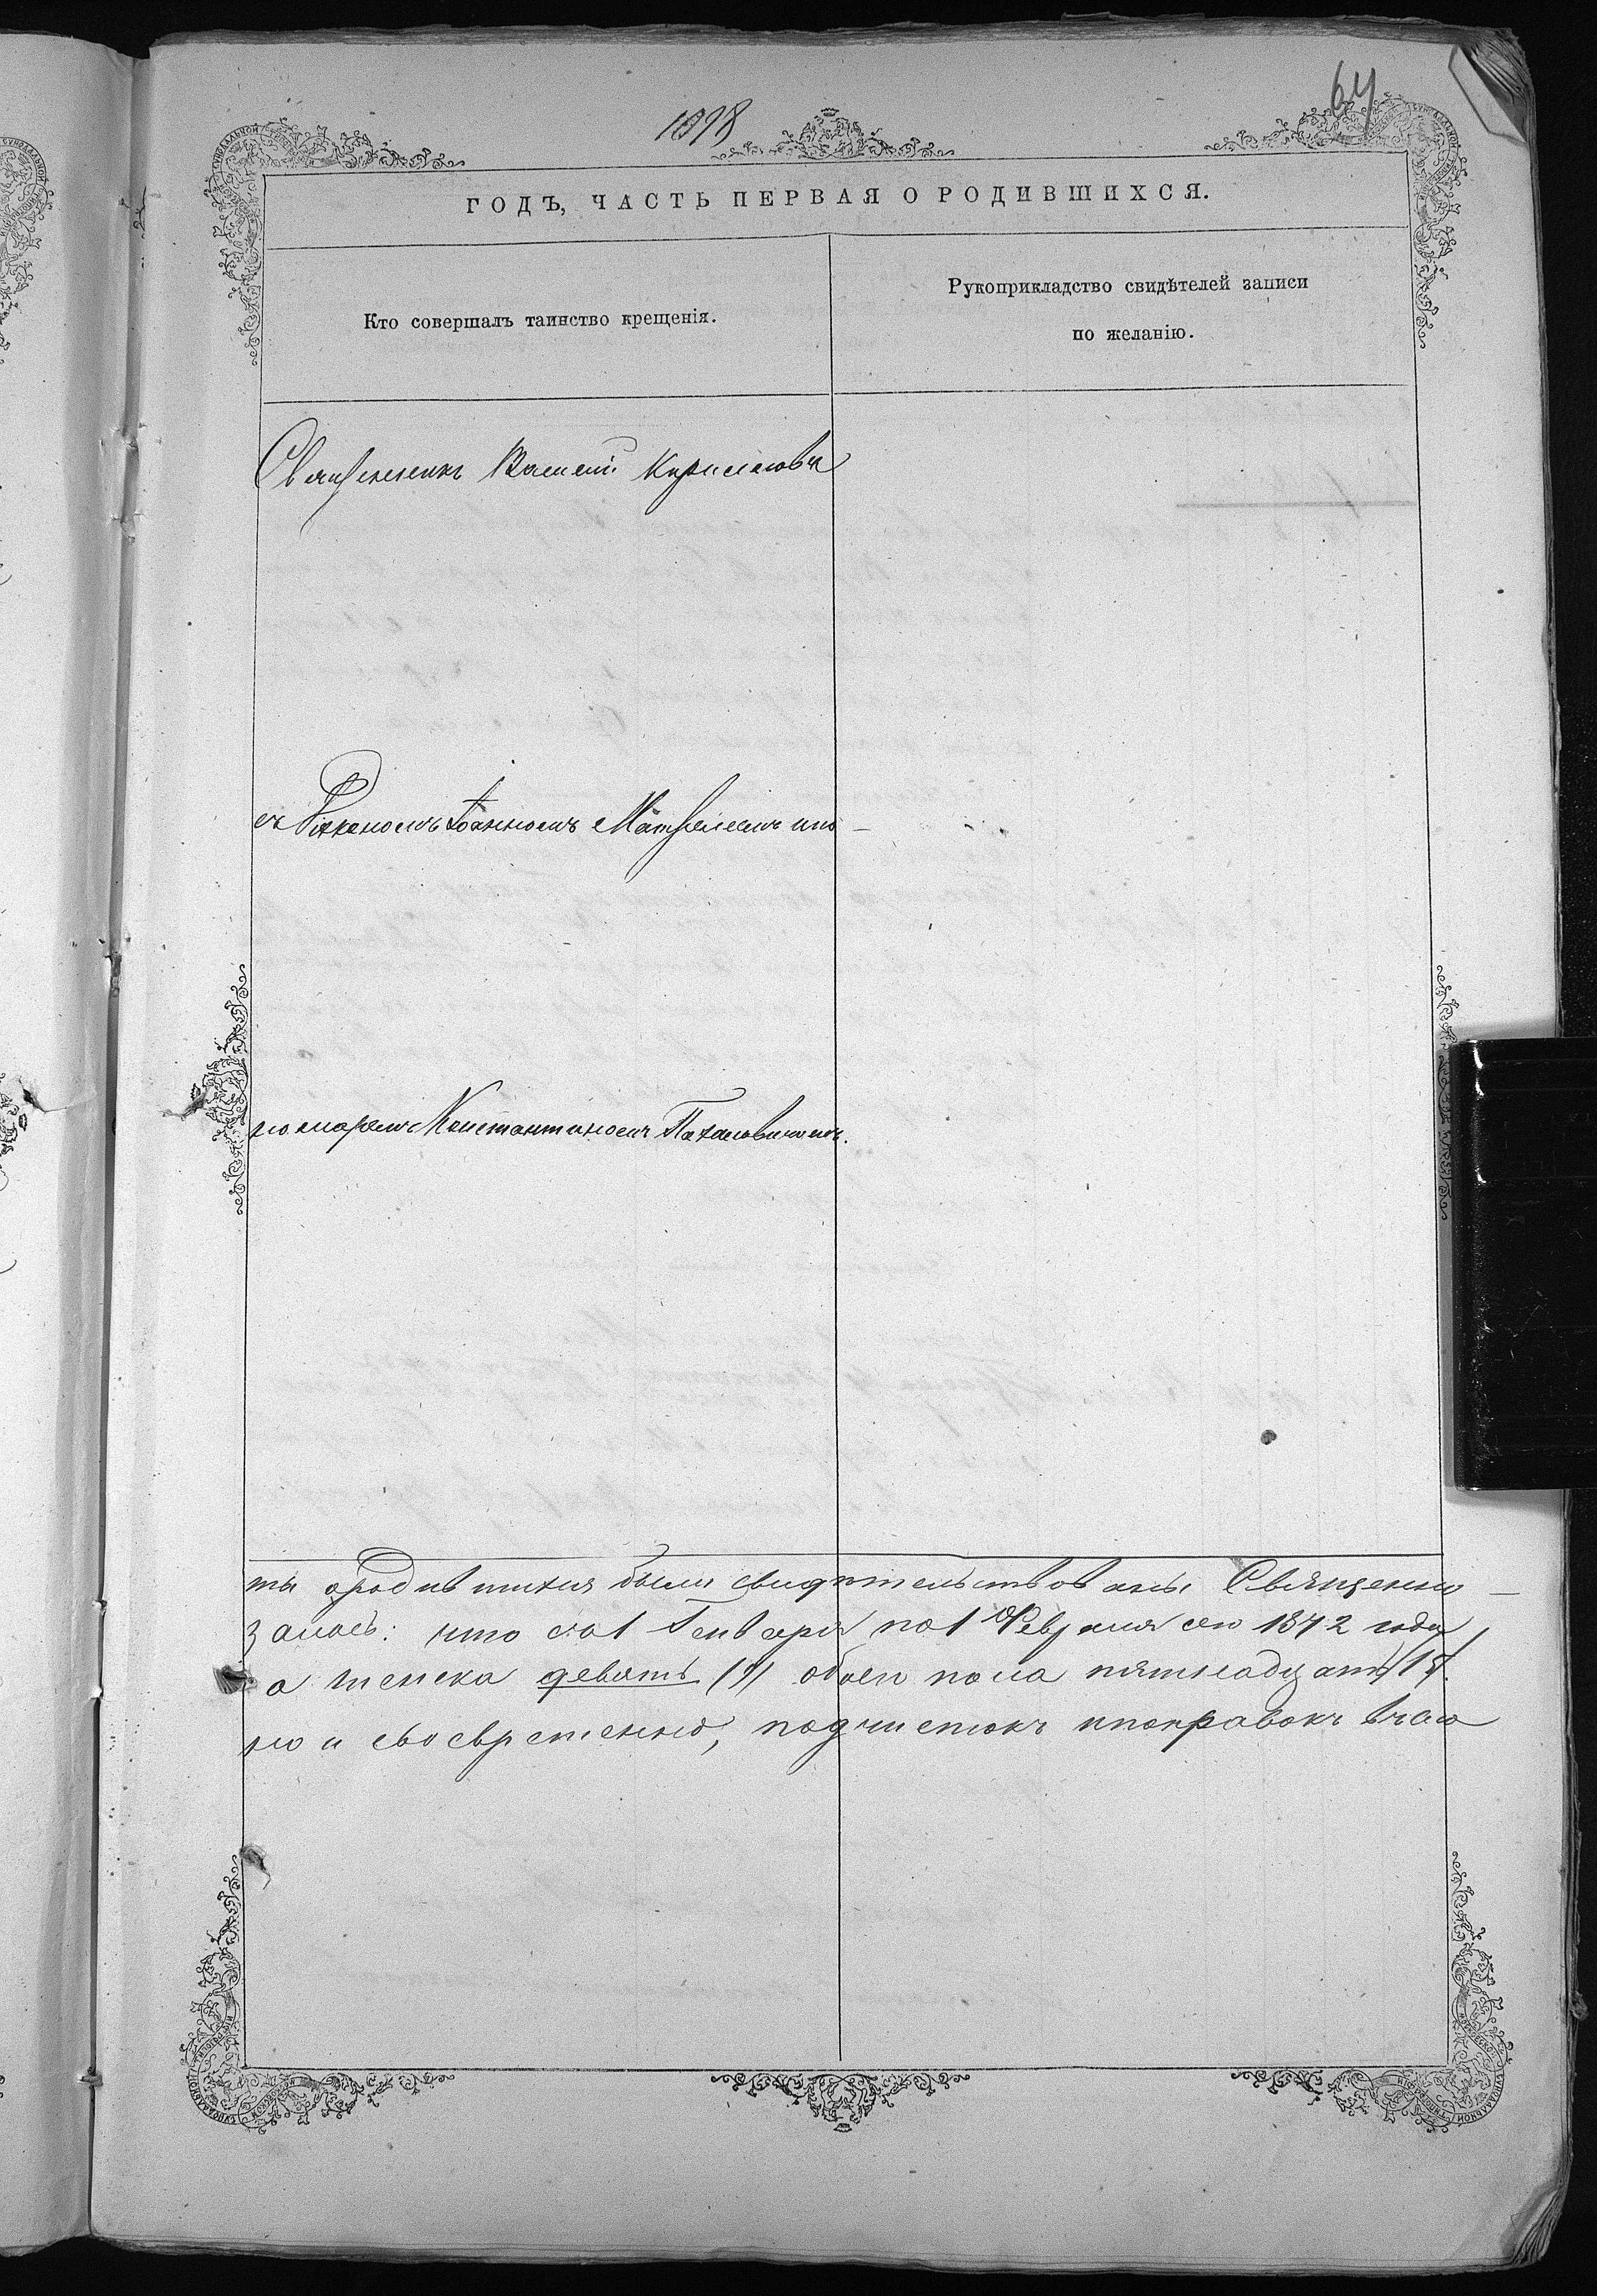 1898
64
ГОДЪ, ЧАСТЬ ПЕРВАЯ О РОДИВШИХСЯ.
Кто совершалъ таинство крещенія.
Рукоприкладство свидѣтелей записи
по желанію.
Священникъ Василій Кириллова
съ Діакономъ Іоанномъ Матѳеемъ и по-
номаремъ Константиномъ Пахаловичомъ.
ты ородившихся были свидѣтельствованы Священно-
залось: что съ 1 Генваря по 1 Февраля сего 1872 года
а женска девять (9) обоего пола пятнадцать (15).
но и своевременно, подчистокъ и поправокъ